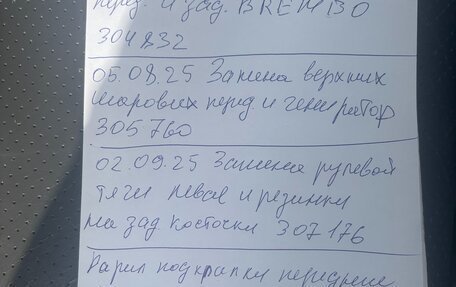 перед. и зад. BREMBO
304832
05.08.25 Замена верхних
шаровых перед. и генератор
305760
02.09.25 Замена рулевой
тяги левая и резинки
на зад. косточки 307176
Варил подкрылки передние